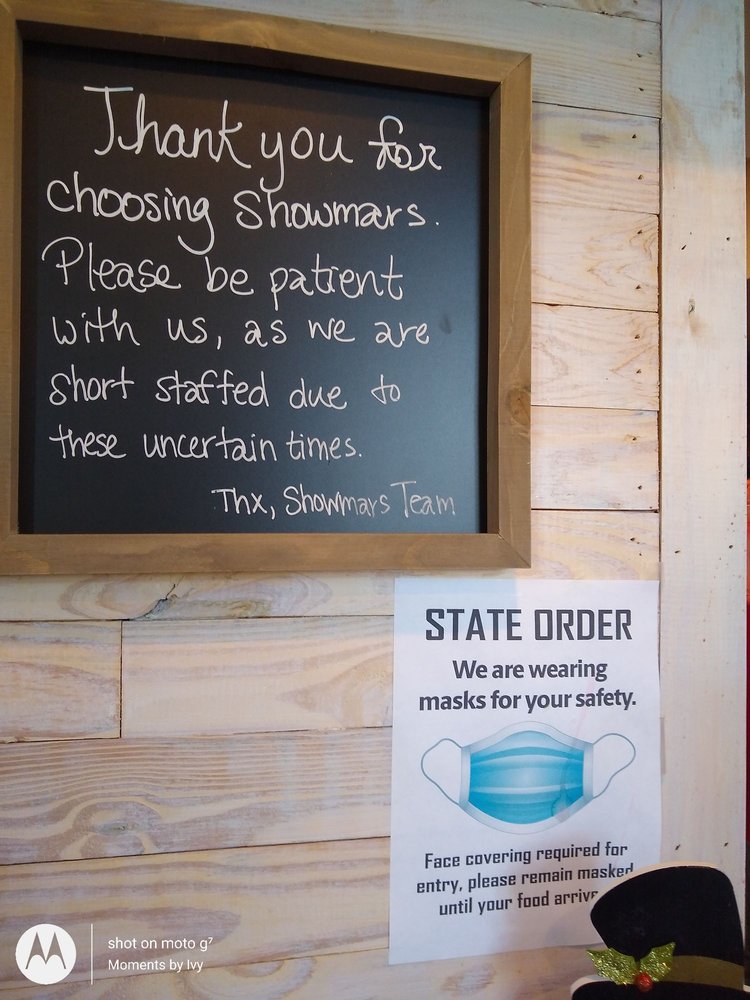 Thank you for
choosing Showmars.
Please be patient
with us, as we are
short staffed due to
these uncertain times.
Thx, Showmars Team
STATE ORDER
We are wearing
masks for your safety.
Face covering required for
entry, please remain masked
until your food
shot on moto g⁷
Moments by Ivy